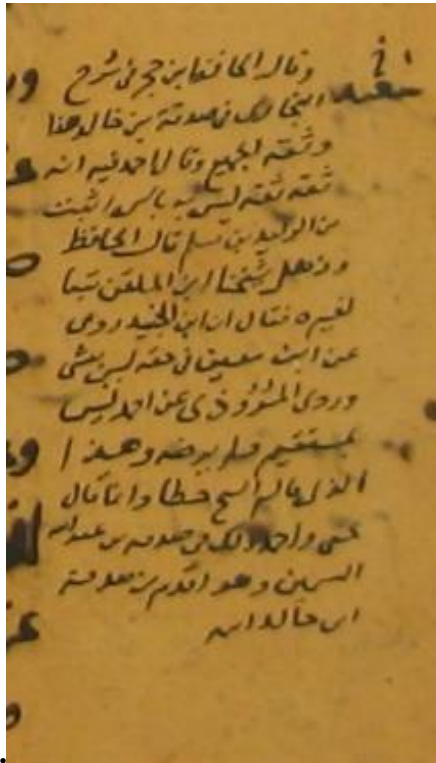 وقال الحافظ ابن حجر في شرح
البخاري في صدقة بن خالد هذا
وثقه الجميع وقال احمد فيه انه
ثقة ثقة ليس به باس اثبت
من الوليد بن مسلم قال الحافظ
وذهل شيخنا ابن الملقن تبعا
لغيره فقال ان ابن الجنيد روى
عن ابن معين في حقه ليس بشي
وروى المروذي عن احمد ليس
بمستقيم فلم يرضه وهذا
الذي قاله الشيخ خطا وانما قال
يحيى واحمد ذلك في صدقة بن عبد الله
السمين وهو اقدم من صدقة
ابن خالد اهـ